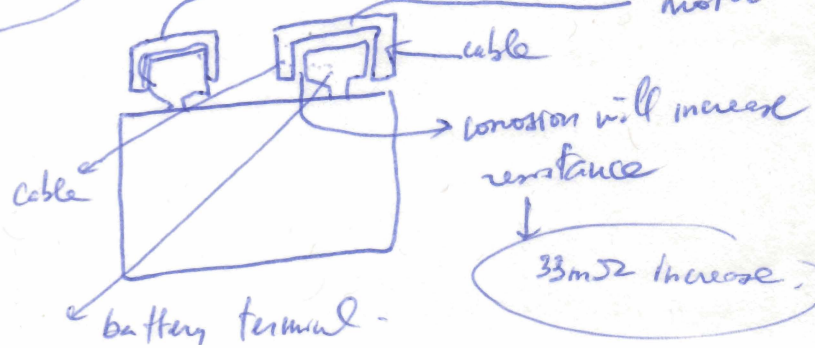 cable
corrosion will increase
resistance
cable
33mΩ increase.
battery terminal.